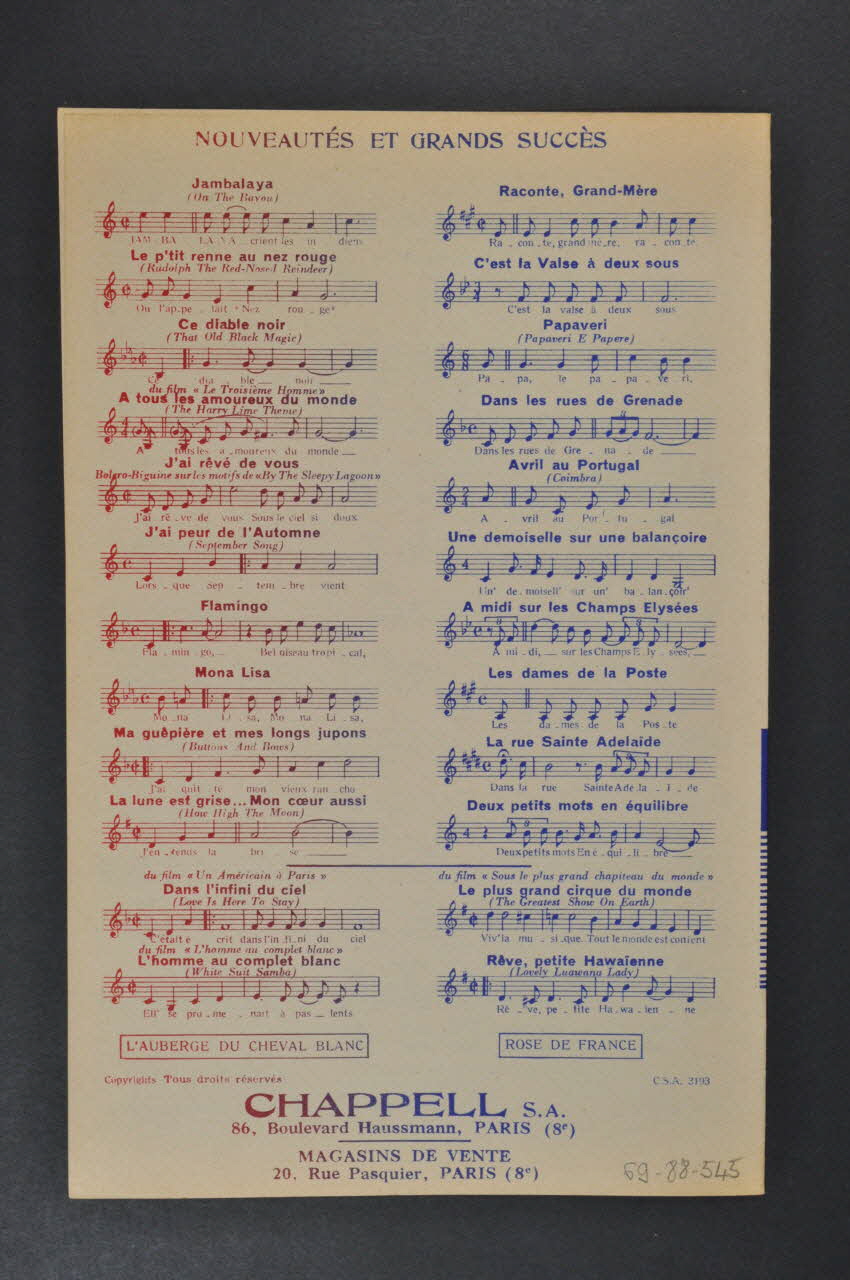 NOUVEAUTÉS ET GRANDS SUCCÈS
Jambalaya
(On The Bayou)
JAM - BA LA-YA crient les in diens
Le p'tit renne au nez rouge
(Rudolph The Red-Nosed Reindeer)
On l'ap-pe - lait "Nez rou - ge"
Ce diable noir
(That Old Black Magic)
Ce dia ble noir
du film « Le Troisième Homme »
A tous les amoureux du monde
(The Harry Lime Theme)
A tous les a - moureux du monde
J'ai rêvé de vous
Boléro-Biguine sur les motifs de «By The Sleepy Lagoon»
J'ai rê - vé de vous Sous le ciel si doux
J'ai peur de l'Automne
(September Song)
Lors - que Sep - tem - bre vient
Flamingo
Fla - min - go, Bel oiseau tropi - cal,
Mona Lisa
Mo - na Li - sa, Mo na Li - sa,
Ma guêpière et mes longs jupons
(Buttons And Bows)
J'ai quit té mon vieux ran cho
La lune est grise... Mon cœur aussi
(How High The Moon)
J'en - tends la bri se
du film « Un Américain à Paris »
Dans l'infini du ciel
(Love Is Here To Stay)
C'était é crit dans l'in - fi - ni du ciel
du film « L'homme au complet blanc »
L'homme au complet blanc
(White Suit Samba)
Ell' se pro - me - nait à pas lents
L'AUBERGE DU CHEVAL BLANC
Raconte, Grand-Mère
Ra - con - te, grand mè - re, ra - con - te.
C'est la Valse à deux sous
C'est la valse à deux sous
Papaveri
(Papaveri E Papere)
Pa - pa, le pa - pa - ve ri,
Dans les rues de Grenade
Dans les rues de Gre - na - de
Avril au Portugal
(Coimbra)
A - vril au Por - tu - gal
Une demoiselle sur une balançoire
Un' de - moisell' sur un' ba - lan - çoir'
A midi sur les Champs Elysées
A mi - di, sur les Champs E - ly - sées,
Les dames de la Poste
Les da - mes de la Pos - te
La rue Sainte Adelaïde
Dans la rue Sainte Adé - la - ï - de
Deux petits mots en équilibre
Deux petits mots En é - qui - li - bre
du film « Sous le plus grand chapiteau du monde »
Le plus grand cirque du monde
(The Greatest Show On Earth)
Viv' la mu - si - que. Tout le monde est content
Rêve, petite Hawaïenne
(Lovely Luawana Lady)
Rê - ve, pe - tite Ha - wa - ïen - ne
ROSE DE FRANCE
Copyrights Tous droits réservés
C.S.A. 3193
CHAPPELL S.A.
86, Boulevard Haussmann, PARIS (8e)
MAGASINS DE VENTE
20, Rue Pasquier, PARIS (8e)
69-88-545